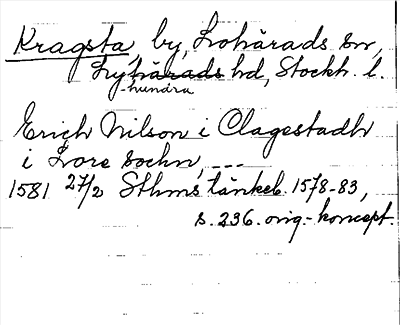 Kragsta, by, Lohärads sn,
Lyhärads hd, Stockh. l.
-hundra
Erich Nilson i Clagestadh
i Lore sochn, ---
1581 27/2 Sthms tänkeb. 1578-83,
s. 236. orig.-koncept.